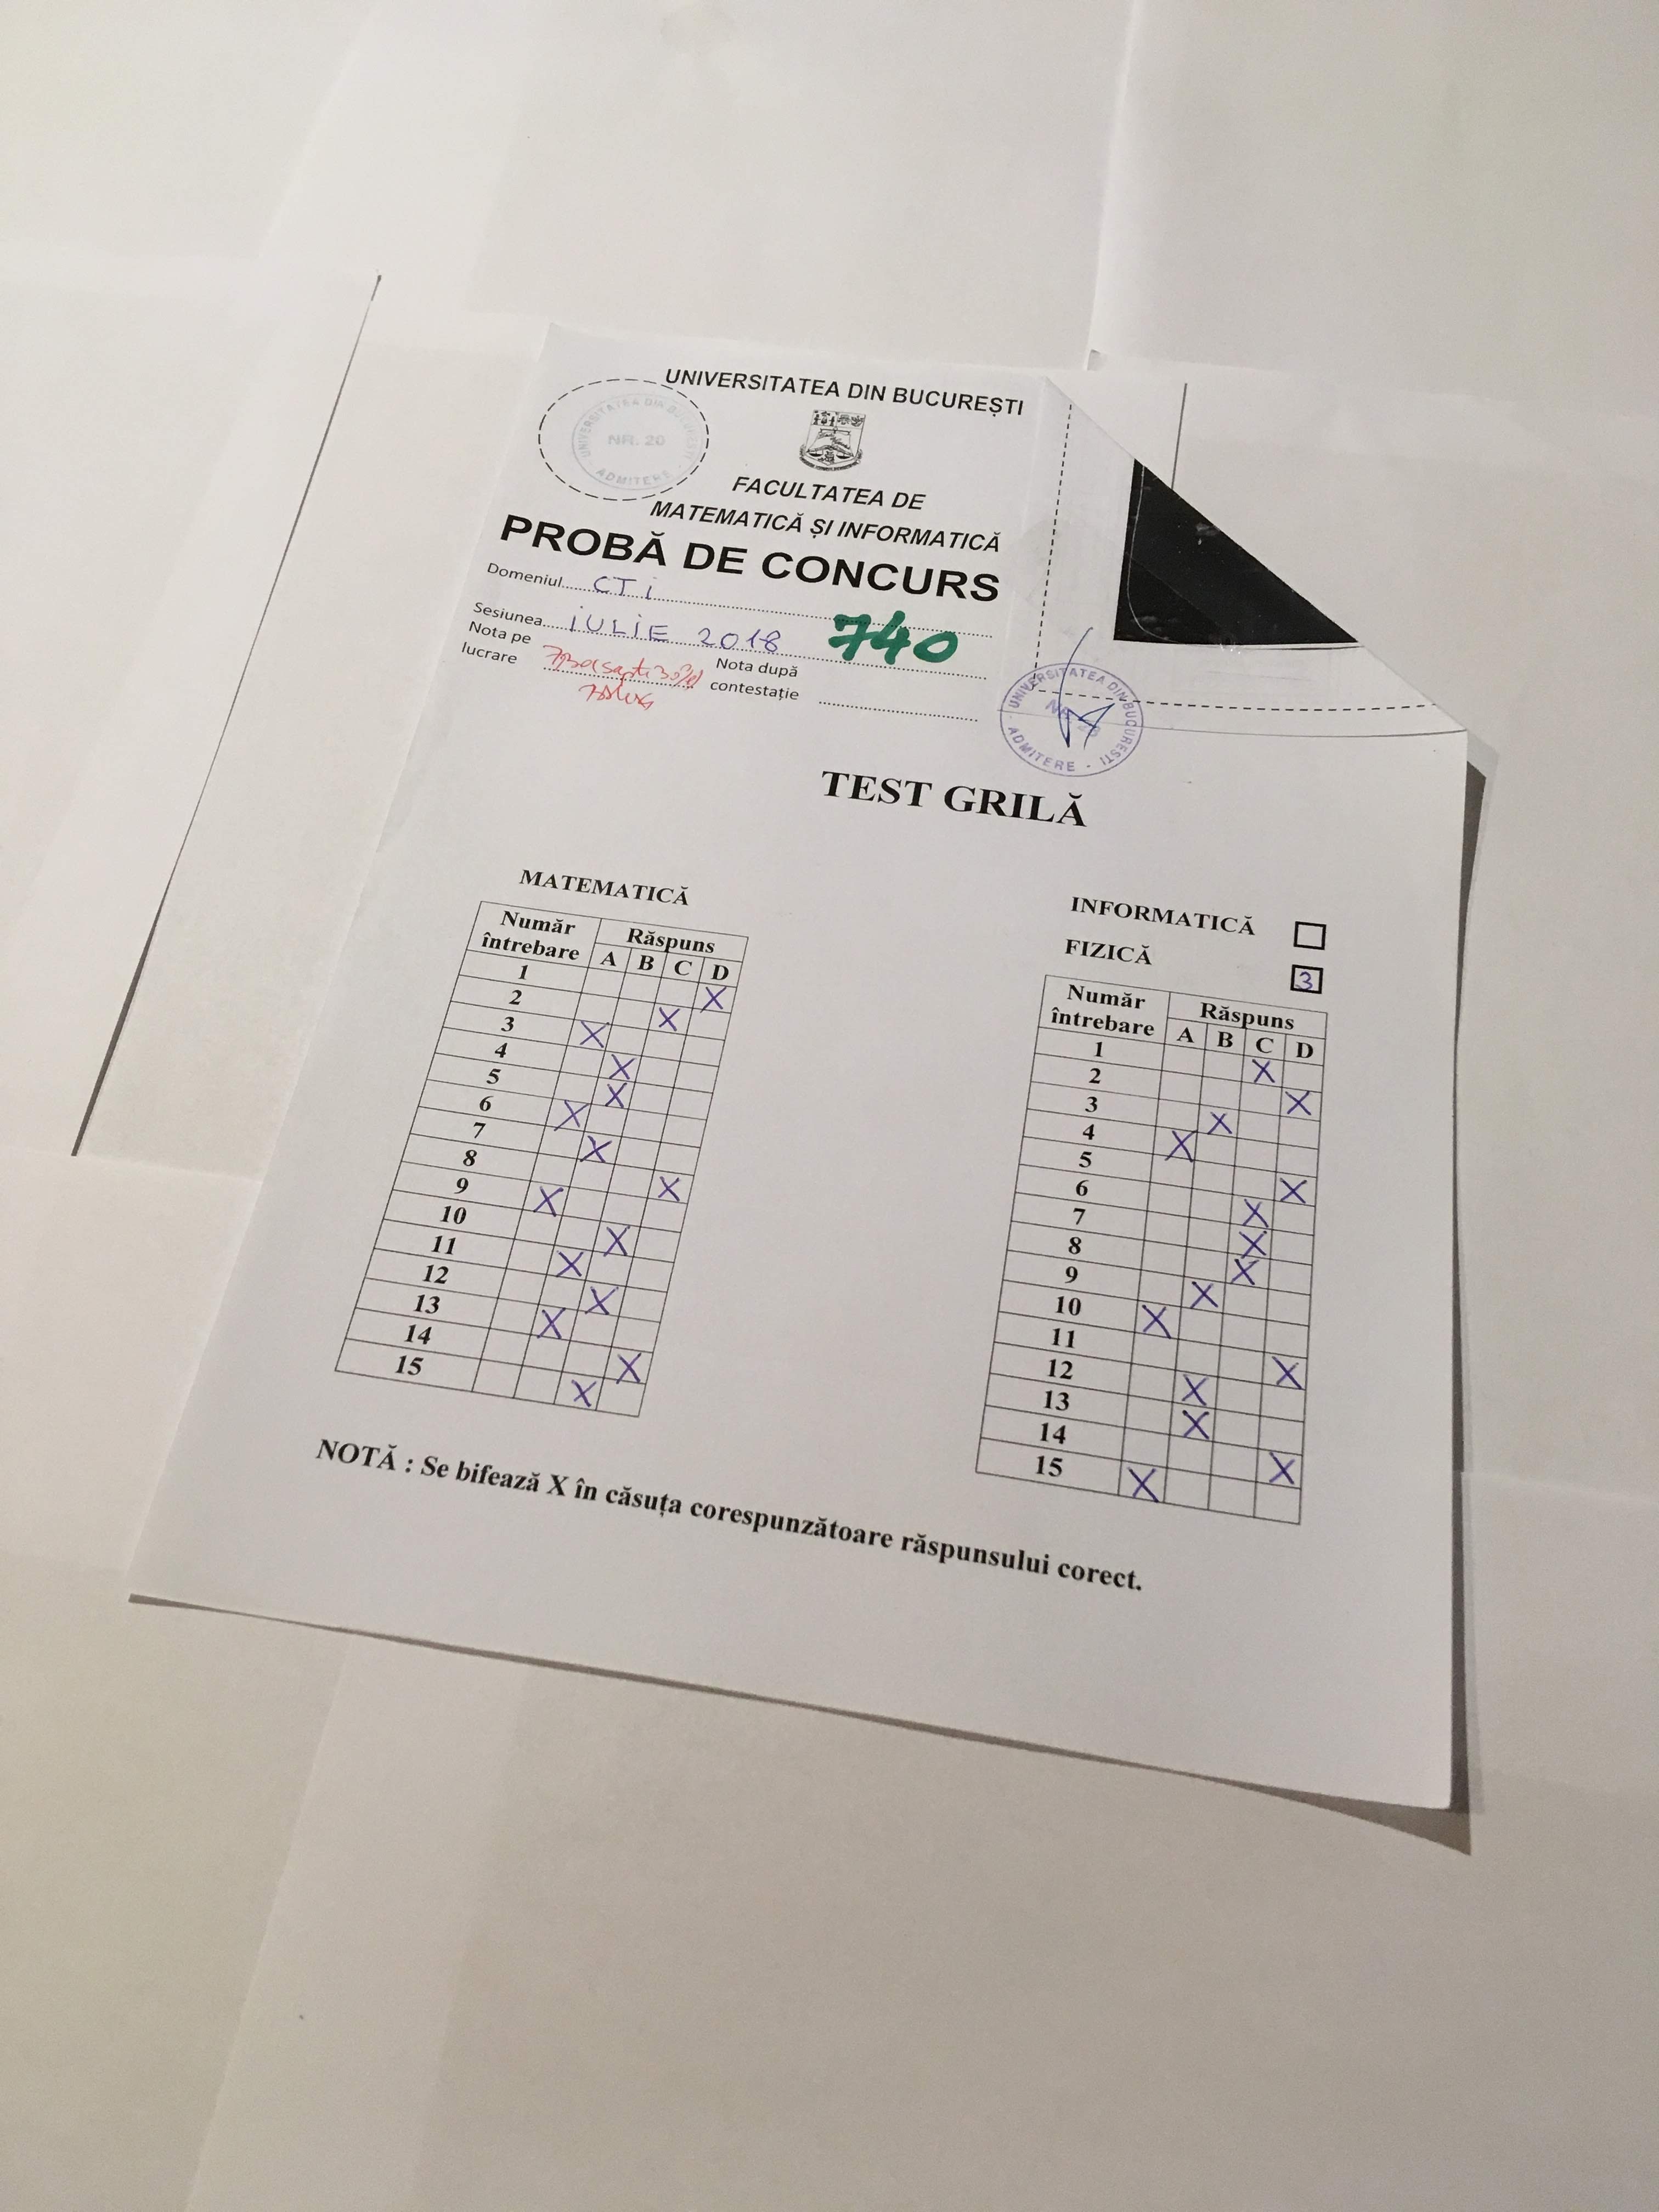 UNIVERSITATEA DIN BUCUREȘTI
UNIVERSITATEA DIN BUCUREȘTI
NR. 20
ADMITERE
FACULTATEA DE
MATEMATICĂ ȘI INFORMATICĂ
PROBĂ DE CONCURS
Domeniul CTi
Sesiunea iULiE 2018 740
Nota pe lucrare
Nota după contestație
UNIVERSITATEA DIN BUCUREȘTI
ADMITERE
TEST GRILĂ
MATEMATICĂ
Număr întrebare Răspuns
A B C D
1 X
2 X
3 X
4 X
5 X
6 X
7 X
8 X
9 X
10 X
11 X
12 X
13 X
14 X
15 X
INFORMATICĂ
FIZICĂ 3
Număr întrebare Răspuns
A B C D
1 X
2 X
3 X
4 X
5 X
6 X
7 X
8 X
9 X
10 X
11 X
12 X
13 X
14 X
15 X
NOTĂ : Se bifează X în căsuța corespunzătoare răspunsului corect.